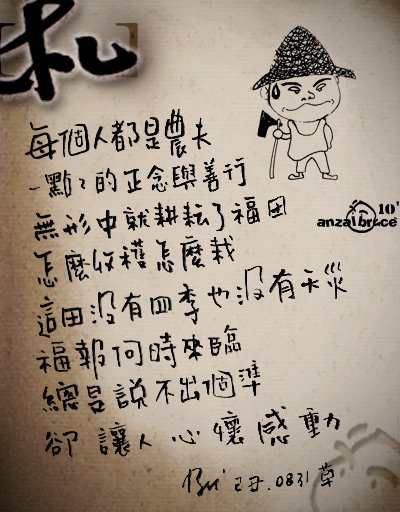 [札]
每個人都是農夫
一點點的正念與善行
無形中就耕耘了福田
怎麼收穫怎麼栽
這田沒有四季也沒有天災
福報何時來臨
總是說不出個準
卻讓人心懷感動
0831 草
10'
anzaibruce